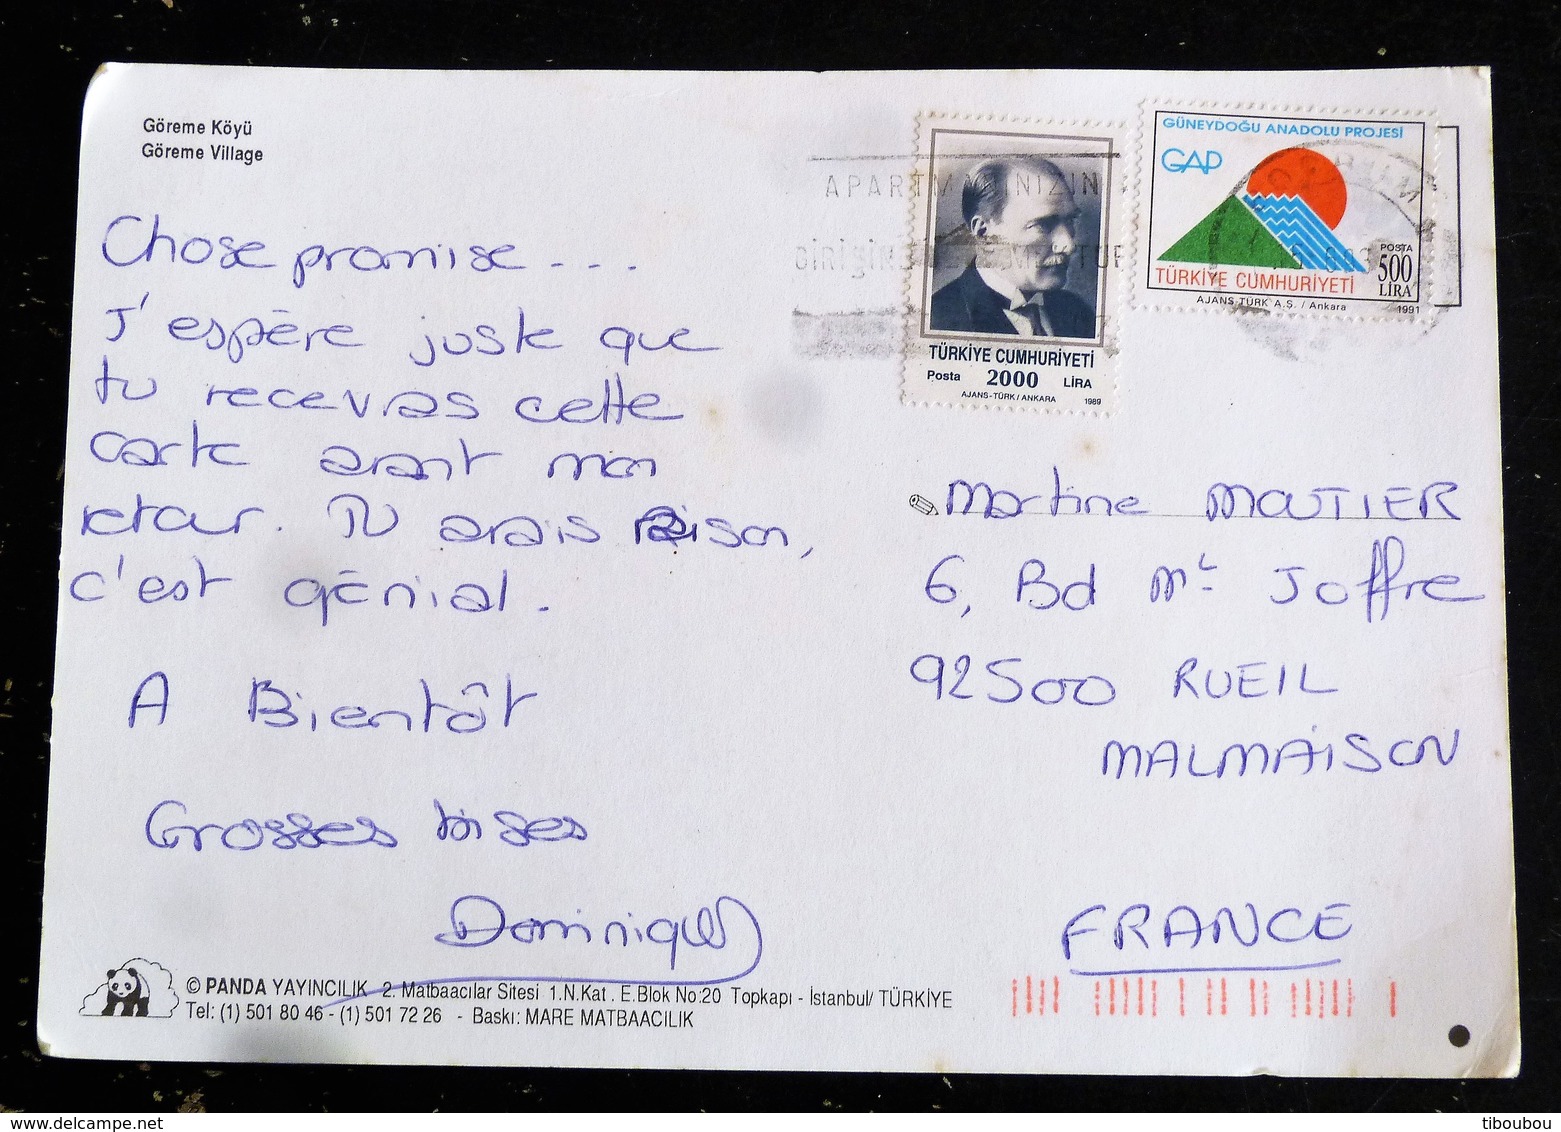 Göreme Köyü
Göreme Village
Chose promise...
J'espère juste que
tu recevras cette
carte avant mon
retour. Tu avais raison,
c'est génial.
A Bientôt
Grosses bises
Dominique
© PANDA YAYINCILIK 2. Matbaacılar Sitesi 1.N.Kat . E.Blok No:20 Topkapı - İstanbul/ TÜRKİYE
Tel: (1) 501 80 46 - (1) 501 72 26 - Baskı: MARE MATBAACILIK
TÜRKİYE CUMHURİYETİ
Posta 2000 LİRA
AJANS-TÜRK/ANKARA 1989
GÜNEYDOĞU ANADOLU PROJESİ
GAP
POSTA
500
LİRA
TÜRKİYE CUMHURİYETİ
AJANS TÜRK A.Ş. / Ankara 1991
Martine MOUTIER
6, Bd Mt Joffre
92500 RUEIL
MALMAISON
FRANCE
tiboubou